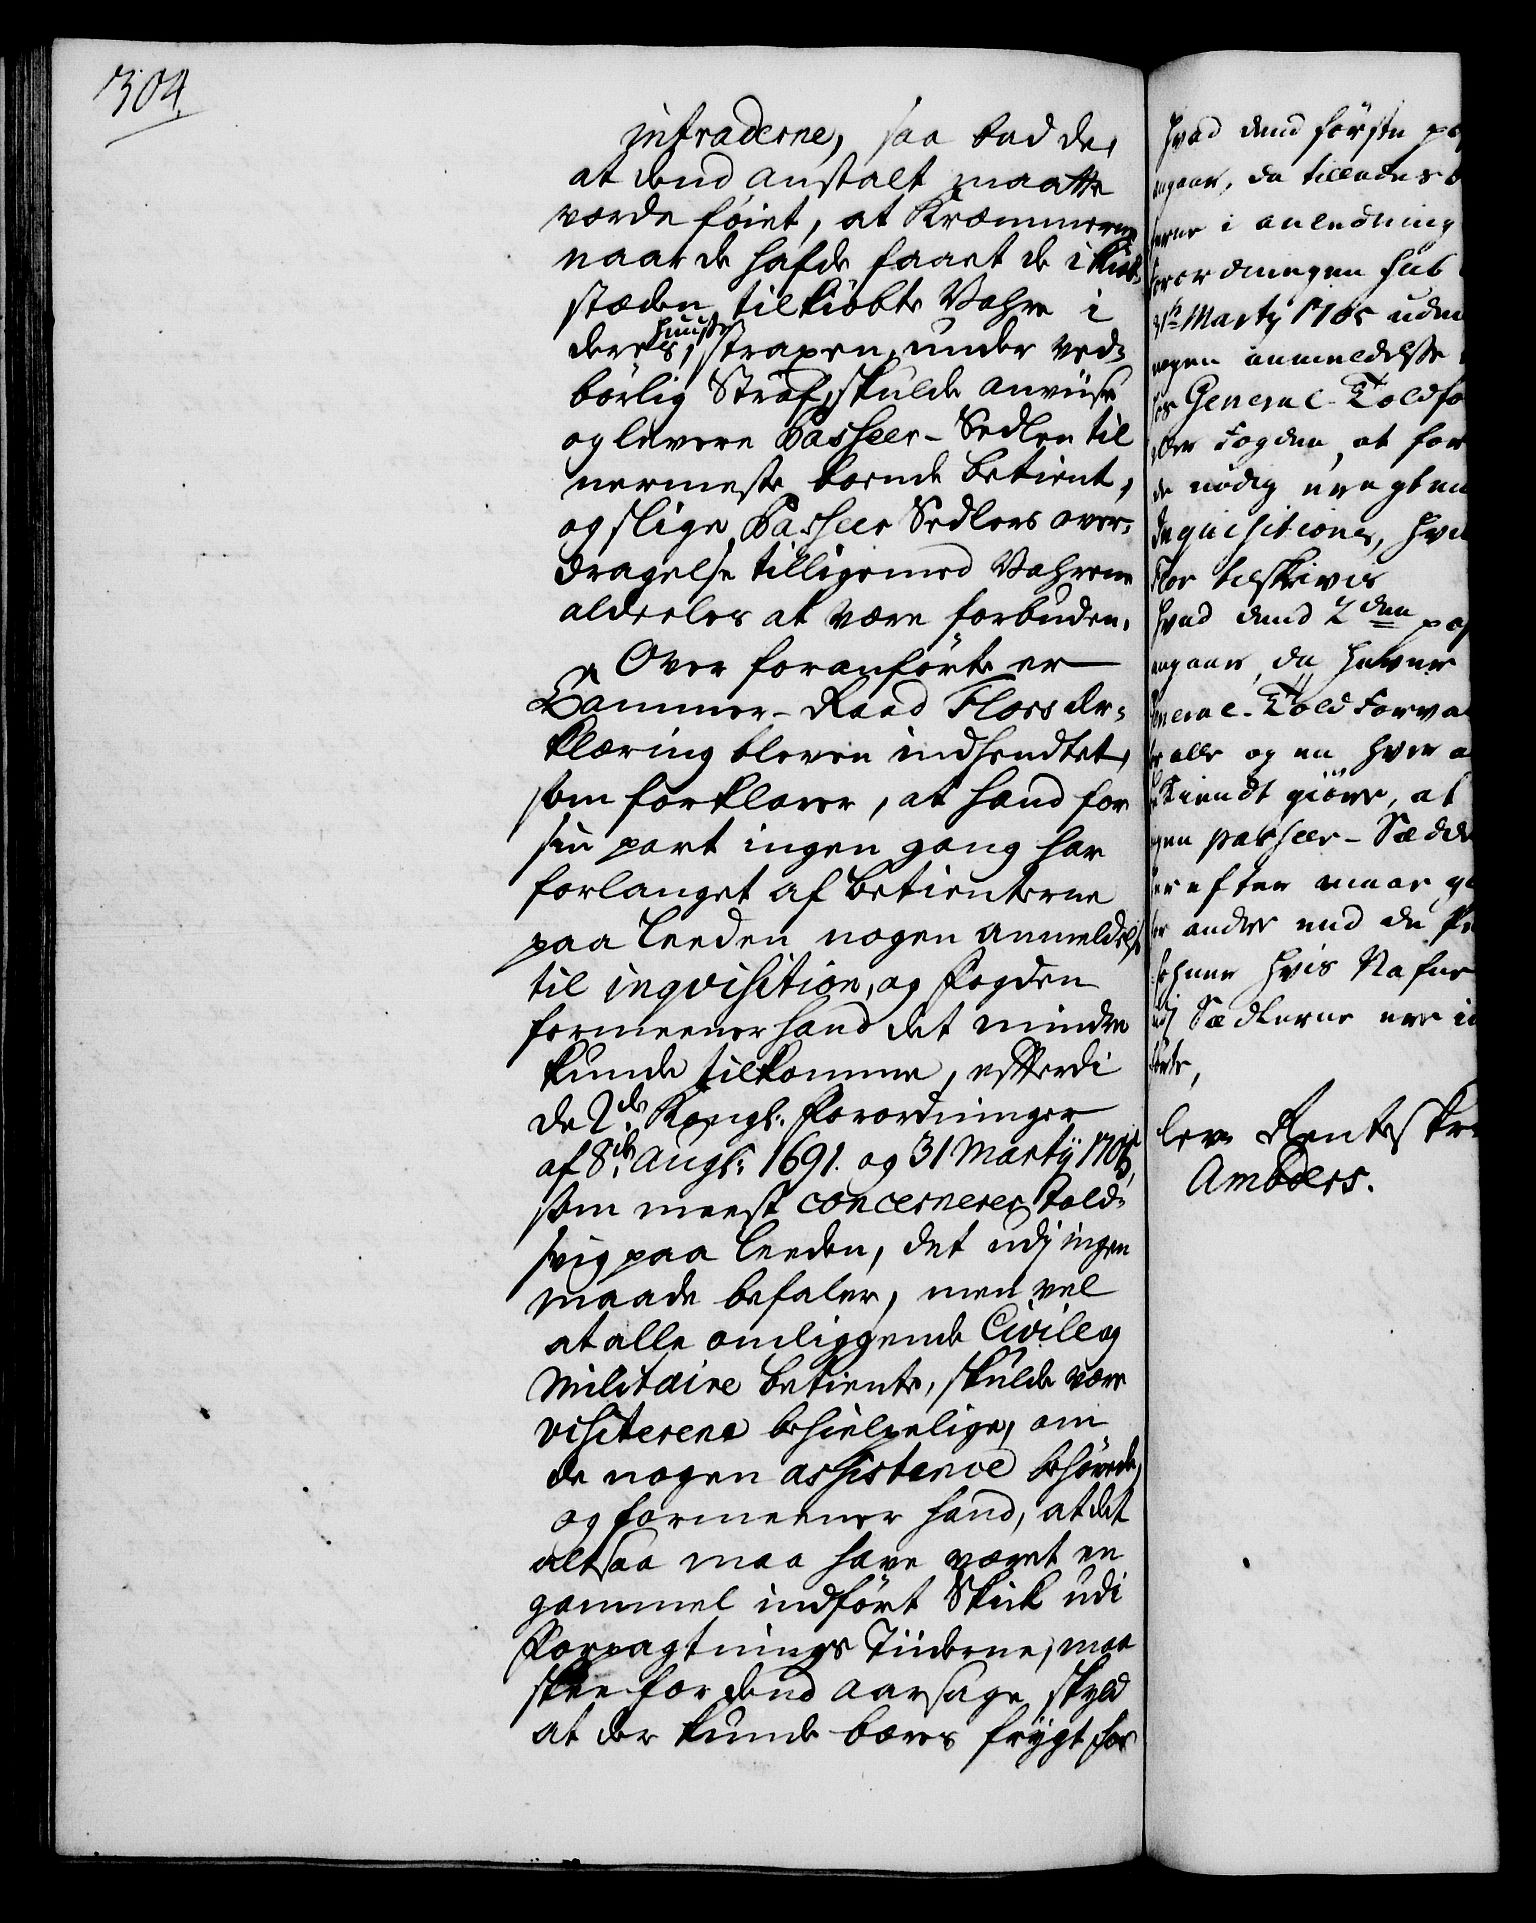 304.
intraderne, saa bad de,
at dend anstalt maatte
vorde föiet, at Kræmmerne
naar de hafde faaet de i Kiøb-
stæden tilkiöbte Vahre i
deres huuse, strapen, under ved-
börlig Straf, skulde anviise
og levere Passeer-Sedlen til
nermeste boende betient,
og slige Passeer Sedlers over-
dragelse tilligemed Vahrene
alderlos at være forbuden.
Over foranförte er
Cammer-Raad Flors Er-
klæring bleven indhendtet,
som forklarer, at hand for
sin part ingen gang har
forlanget af betienterne
paa Landen nogen anmeldelse
til inqvisition, og Fogden
formeener hand det mindre
kunde tilkomme, efterdi
de 2de Kongl: Forordninger
af 8de Augs: 1691. og 31 Martij 1705,
som meest concernerer Told-
svig paa Landen, det udj ingen
maade befaler, men vel
at alle omliggende Civile og
Militaire betiente, skulde være
visiterene behielpelige, om
de nogen assistence behövede,
og formeener hand, at det
altsaa maa have været en
gammel indfört Skick udi
Forpagtnings Tiiderne, maa
skee for dend aarsage skyld
at der kunde bæres frygt for
hvad dend förste
angaar, da tillades
i anledning
forordningen
31te Martij 1705 uden
nogen anmeldelse
hos General-Toldfor
eller Fogden, at for
de nödig eragtende
Inquisitioner,
Flor tilskrives
hvad dend 2den
angaar, da haver
General-Toldforval
alle og en hver
bekiendt giöre, at
ingen Passeer-Sædde
herefter maae
andre end de Per
sohner hvis Nafne
udj Sædlerne ere in
förte,
lev. Renteskr
Ambders.